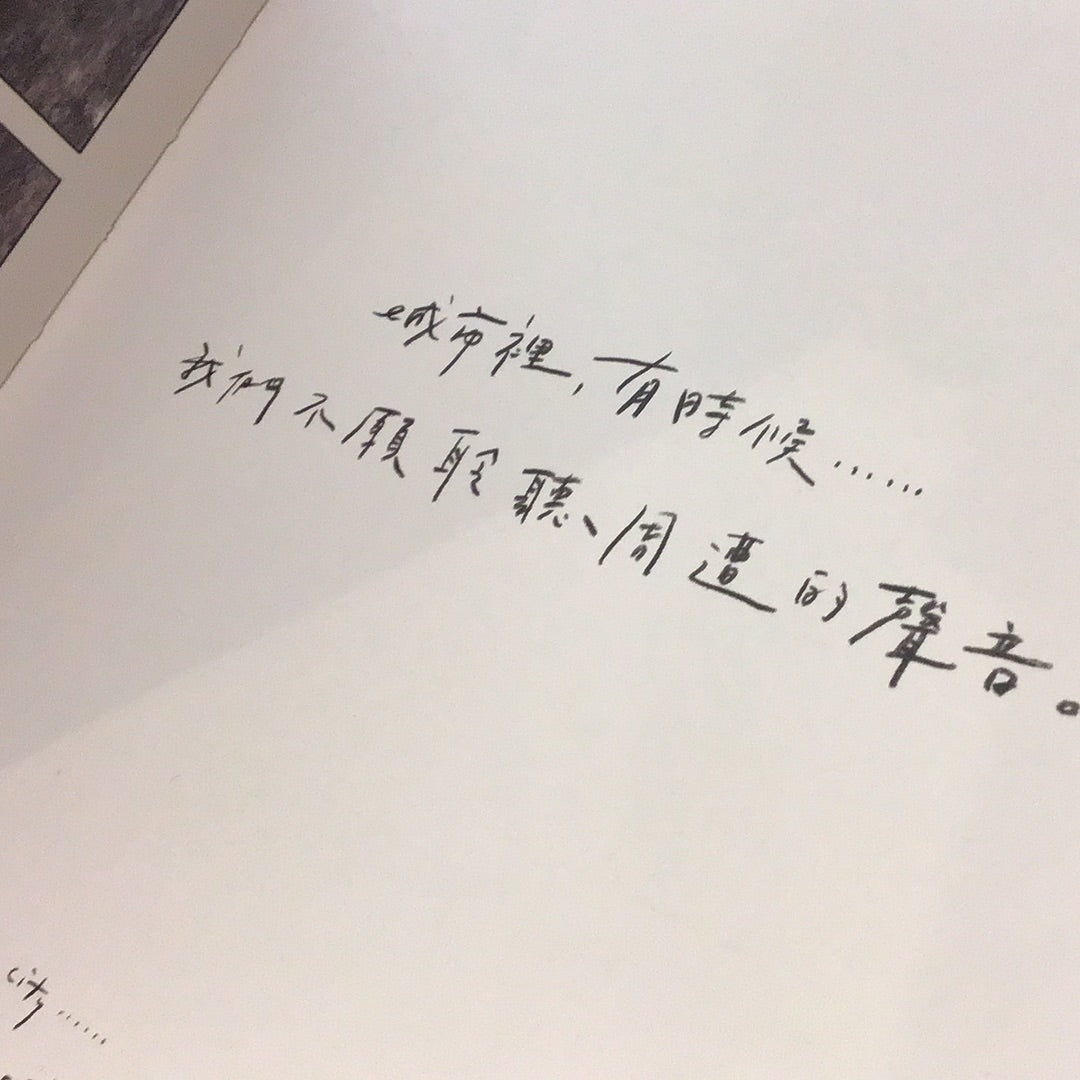 城市裡，有時候……
我們不願聆聽、周遭的聲音。
city……